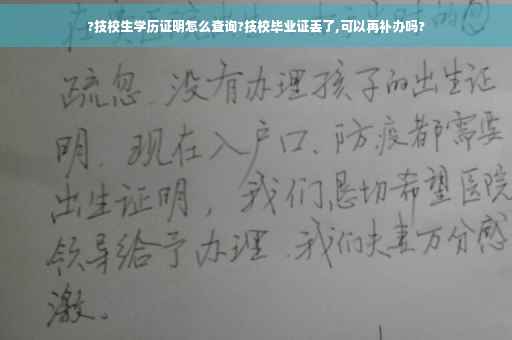 ?技校生学历证明怎么查询?技校毕业证丢了,可以再补办吗?
疏忽、没有办理孩子的出生证
明、现在入户口、防疫都需要
出生证明，我们恳切希望医院
领导给予办理、我们夫妻万分感
激。